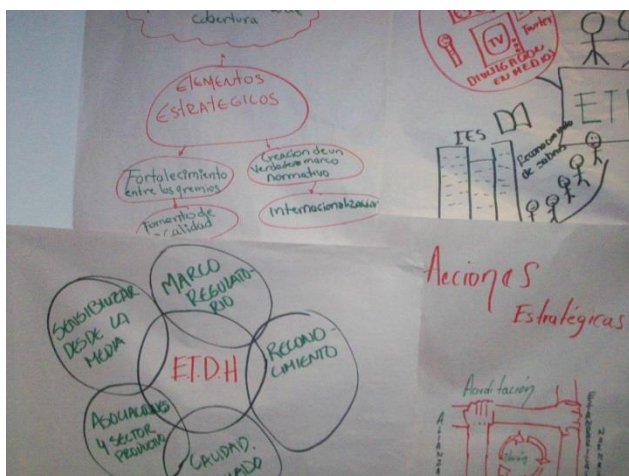 cobertura
ELEMENTOS
ESTRATEGICOS
Fortalecimiento
entre los gremios
Fomento de
calidad
Creacion de un
Verdadero marco
normativo
Internacionalización
Twitter
TV
DIVULGACION
EN MEDIOS
IES
Reconocimiento
de saberes
SENSIBILIZAR
DESDE LA
MEDIA
MARCO
REGULATO-
RIO
E.T.D.H
RECONO-
CIMIENTO
ASOCIACIONES
Y SECTOR
CALIDAD.
Acciones
Estratégicas
Acreditación
ALIANZA
Unión